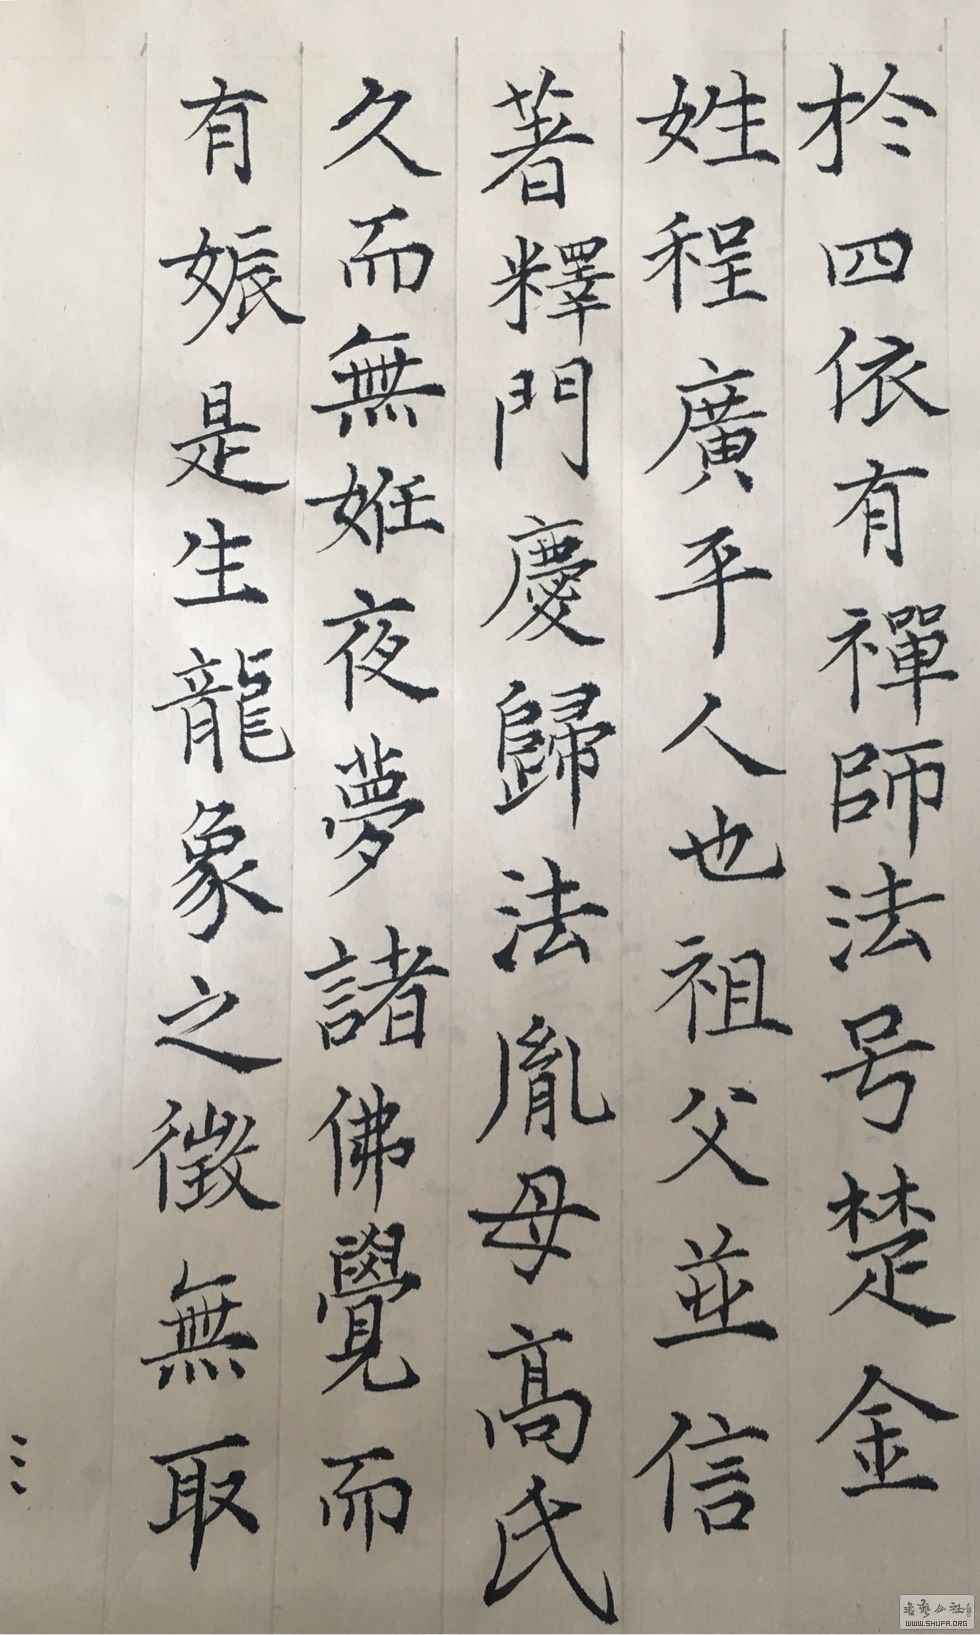 於四依有禪師法号楚金
姓程廣平人也祖父並信
著釋門慶歸法胤母高氏
久而無姙夜夢諸佛覺而
有娠是生龍象之徵無取
WWW.SHUFA.ORG